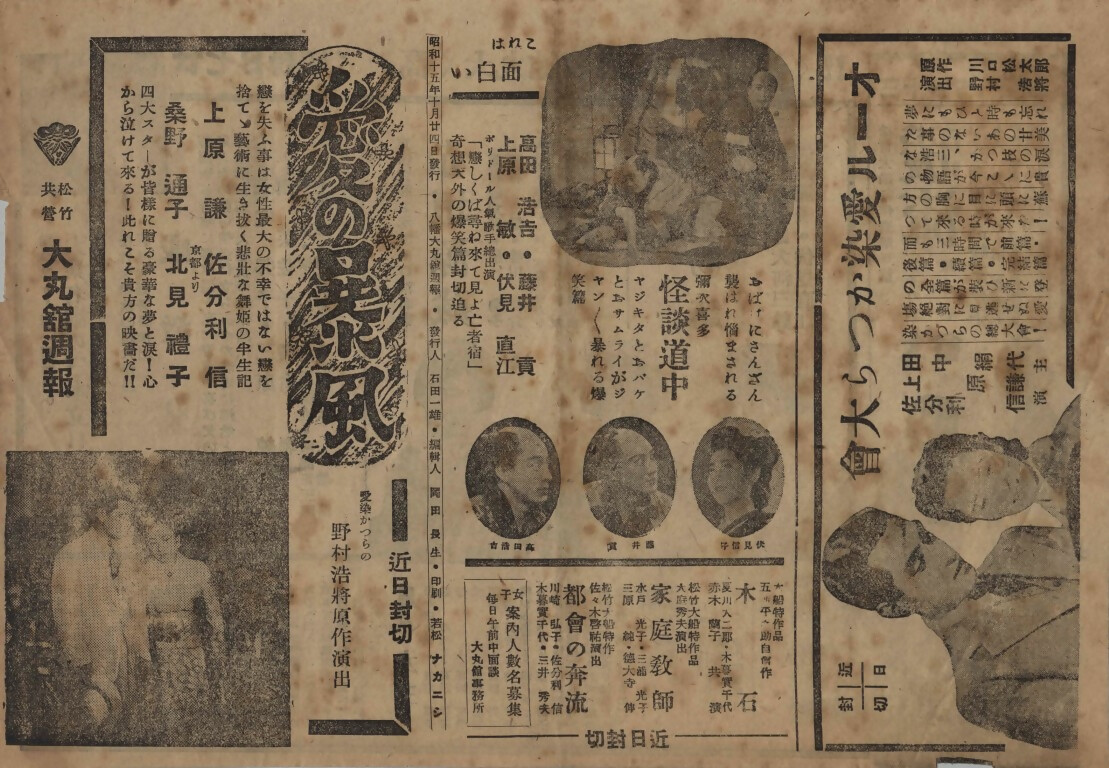 オール愛染かつら大會
原作 川口松太郎
演出 野村浩將
夢にもひと時も忘れ
た事のないあの甘美
な浩三、かつ枝の涙
の物語が今こゝに貴
方の胸に目に頭に蘇
つて來る日が來た！
面も三時間で前篇・
後篇・續篇・完結篇
の全篇が裝ひ新に登
場絶對に見逃せぬ愛
染かつらの總大會！
主演
田中絹代
上原謙
佐分利信
近日封切
おばけにさんざん
襲はれ惱まされる
彌次喜多
怪談道中
ヤジキタとおバケ
とおサムライがジ
ャン／＼暴れる爆
笑篇
伏見信子
藤井貢
高田浩吉
これは
面白い
高田浩吉・藤井貢
上原敏・伏見直江
ポリドール人氣歌手總出演
「戀しくば尋ね來て見よ亡者宿」
奇想天外の爆笑篇封切迫る
大船特作品
木石
夏川大二郎・木暮實千代
赤木蘭子共演
松竹大船特作品
大庭秀夫演出
家庭敎師
水戸光子・三浦光子
三原純・德大寺伸
松竹大船特作
佐々木啓祐演出
都會の奔流
川崎弘子・佐分利信
木暮實千代・三井秀夫
近日封切
女子案内人數名募集
毎日午前中面談
大丸舘事務所
昭和十五年十月廿四日發行・八幡大丸舘週報・發行人 石田一雄・編輯人 岡田長生・印刷・若松 ナカニシ
愛の暴風
近日封切
愛染かつらの
野村浩將原作演出
戀を失ふ事は女性最大の不幸ではない戀を
捨てゝ藝術に生き拔く悲壯な舞姫の半生記
上原謙 佐分利信
京都より
桑野通子 北見禮子
四大スターが皆樣に贈る豪華な夢と涙！心
から泣けて來る！此れこそ貴方の映畵だ！！
松竹
共營
大丸舘週報